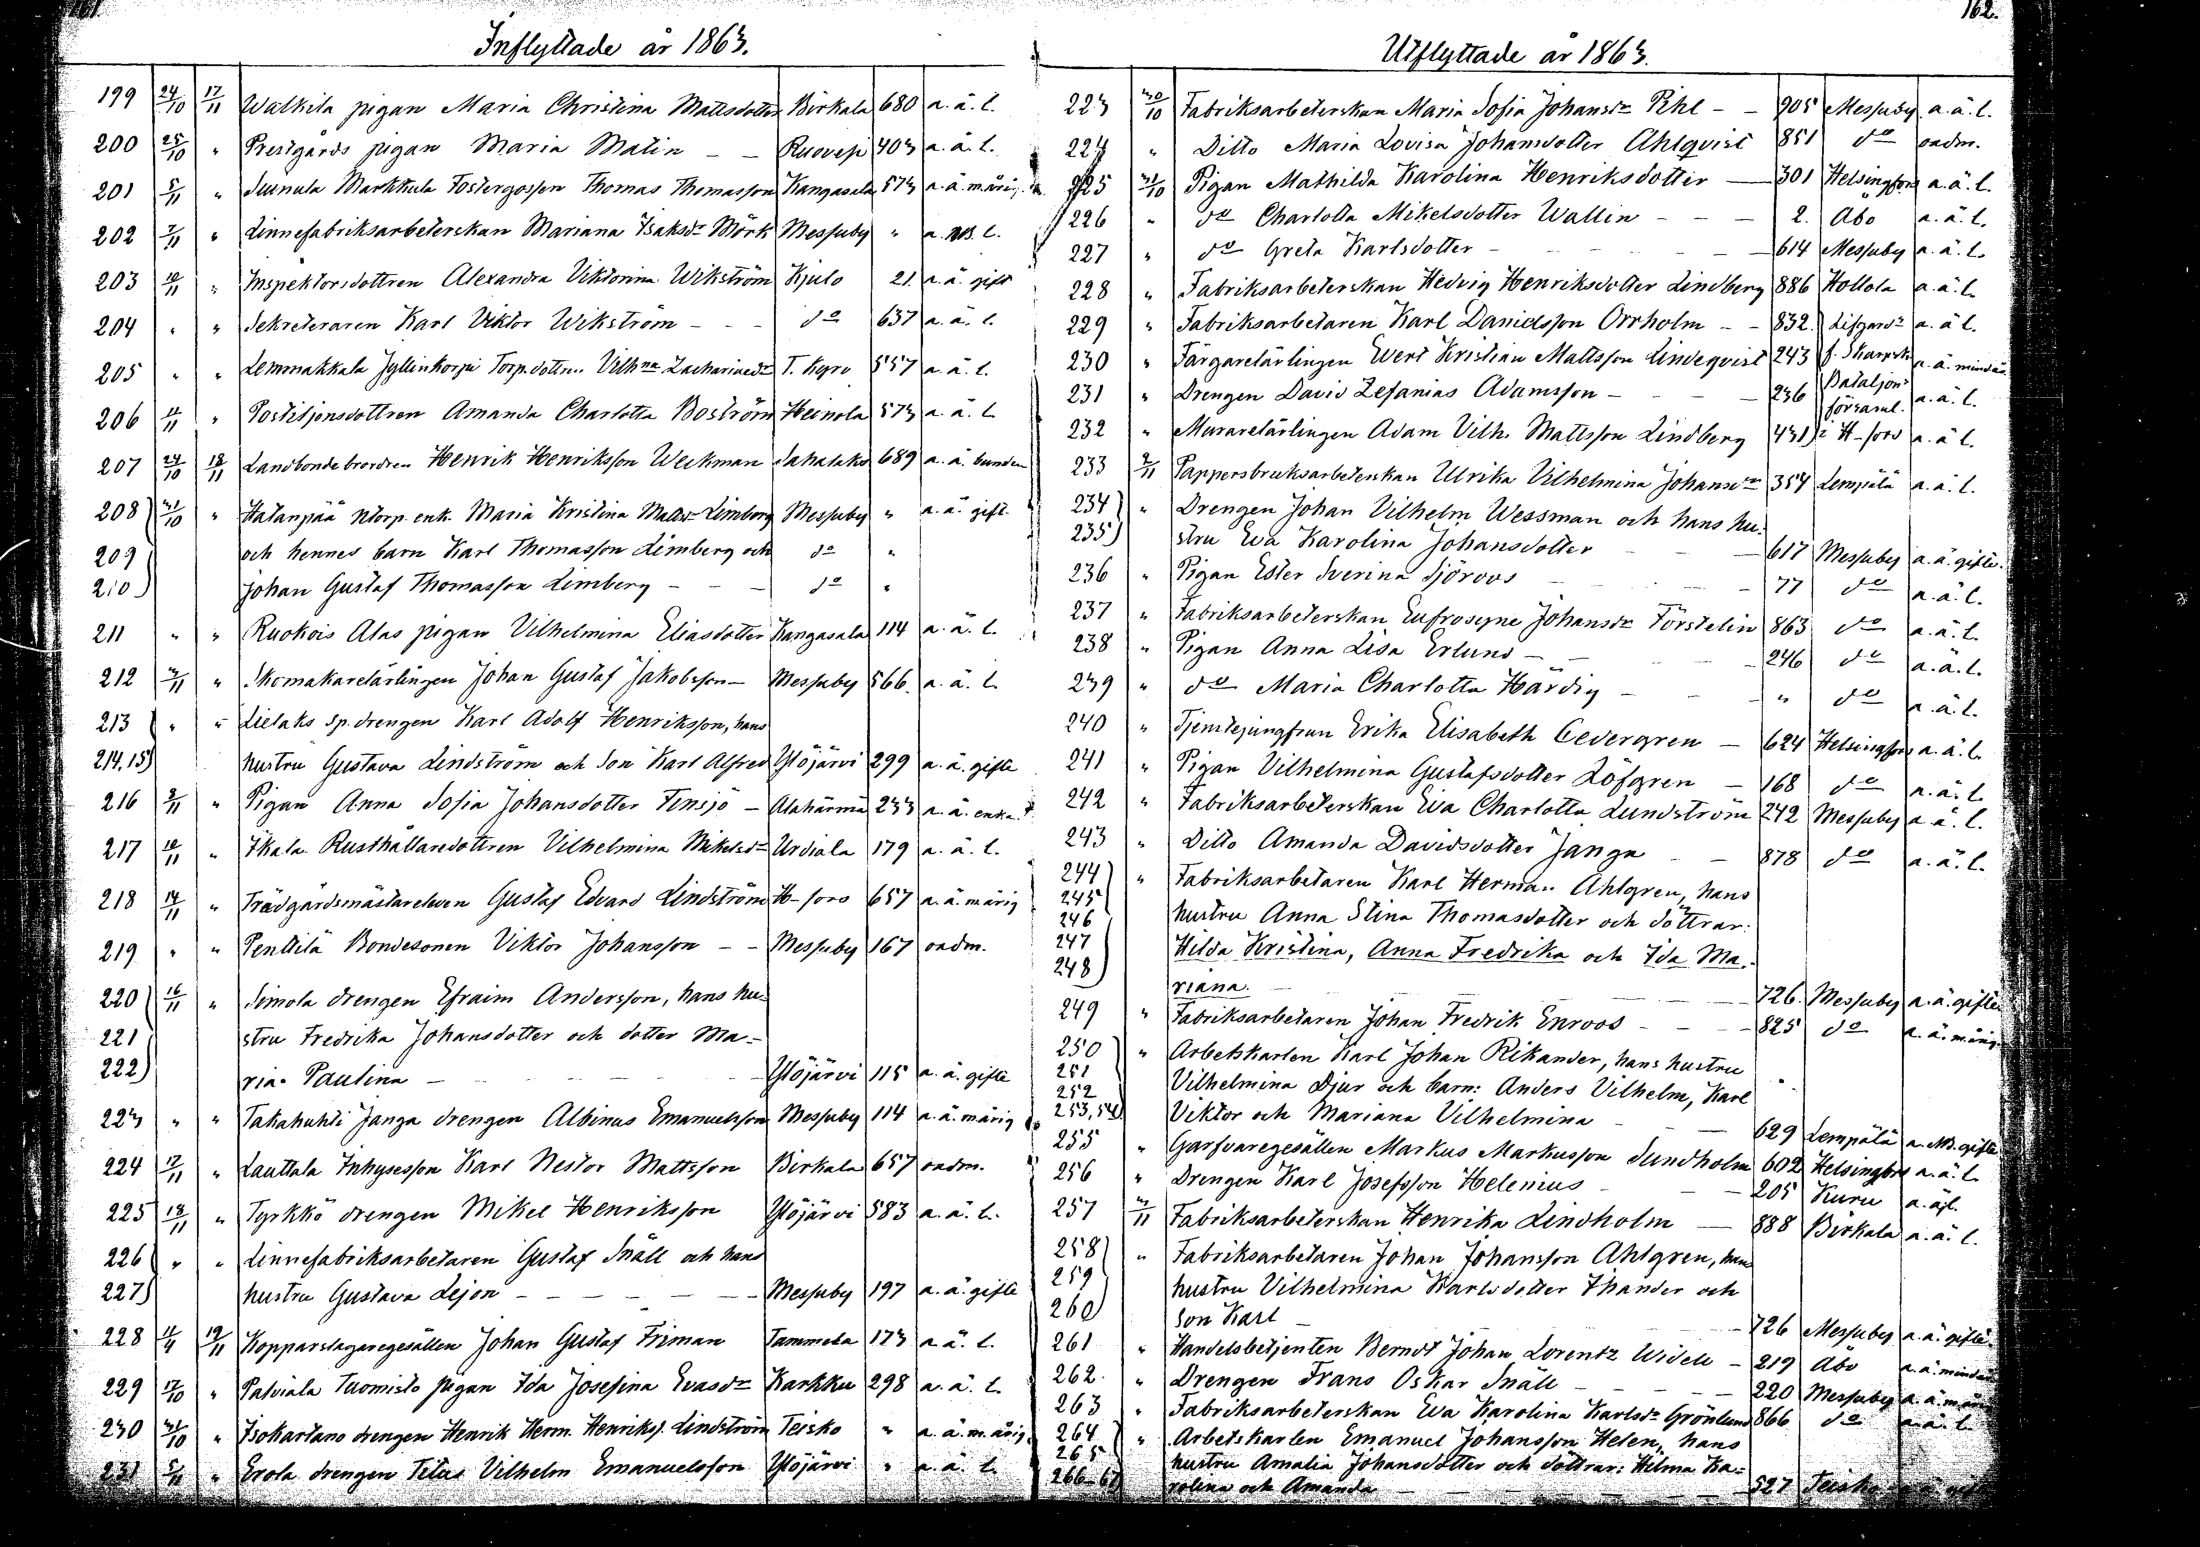 161.
Inflyttade år 1863.
199 24/10 17/11 Walkila pigan Maria Christina Mattsdotter Birkala 680 a.ä.l.
200 25/10 " Prestgårds pigan Maria Malin - - Ruovesi 403 a.ä.l.
201 5/11 " Suinula Markkula Fostergosson Thomas Thomasson Kangasala 573 a.ä.mårig
202 7/11 " Linnefabriksarbeterskan Mariana Isaksdr Mörk Messuby " a. l.
203 10/11 " Inspektorsdottren Alexandra Viktorina Wikström Kjulo 21. a.ä. gift
204 " " Sekreteraren Karl Viktor Wikström - - - do 637 a.ä.l.
205 " " Lemmakkala Jyllinkorpi Torp.dottren Vilhna Zachariaedr T. Kyro 557 a.ä.l.
206 11/11 " Postiljonsdottren Amanda Charlotta Boström Heinola 573 a.ä.l.
207 24/10 18/11 Landbondebrordren Henrik Henriksson Weckman Sahalaks 689 a.ä. bunden
208 31/10 " Hatanpää ntorp.enk. Maria Kristina Mattsdr Limberg Messuby " a.ä. gift.
209 och hennes barn Karl Thomasson Limberg och do "
210 Johan Gustaf Thomasson Limberg - - do "
211 " " Ruokois Alas pigan Vilhelmina Eliasdotter Kangasala 114 a.ä.l.
212 3/11 " Skomakarelärlingen Johan Gustaf Jakobsson - Messuby 566. a.ä.l.
213 " " Lielaks sp.drengen Karl Adolf Henriksson, hans
214.15 hustru Gustava Lindström och son Karl Alfred Ylöjärvi 299 a.ä. gifte
216 8/11 " Pigan Anna Sofia Johansdotter Finsjö - Alahärmä 233 a.ä. enka
217 10/11 " Ikala Rusthållaredottren Vilhelmina Mikelsdr Urdiala 179 a.ä.l.
218 14/11 " Trädgårdsmästareleven Gustaf Edvard Lindström H-fors 657 a.ä. mårig
219 " " Penttilä Bondesonen Viktor Johansson - - Messuby 167 oadm.
220 16/11 " Simola drengen Efraim Andersson, hans hu=
221 stru Fredrika Johansdotter och dotter Ma=
222 ria Paulina - - - - Ylöjärvi 115 a.ä. gifte
223 " " Takahuhti Janga drengen Albinus Emanuelsson Messuby 114 a.ä. mårig
224 17/11 " Lauttala Inhysesson Karl Nestor Mattsson Birkala 657 oadm.
225 18/11 " Tyrkkö drengen Mikel Henriksson Ylöjärvi 583 a.ä.l.
226 " " Linnefabriksarbetaren Gustaf Snäll och hans
227 hustru Gustava Lejon - - - - - Messuby 197 a.ä. gifte
228 11/9 19/11 Kopparslagaregesällen Johan Gustaf Friman Tammela 173 a.ä.l.
229 17/10 " Palviala Tuomisto pigan Ida Josefina Evasdr Karkku 298 a.ä.l.
230 31/10 " Isokartano drengen Henrik Herm. Henrikss. Lindström Teisko " a.ä.mårig
231 5/11 " Erola drengen Titus Vilhelm Emanuelsson Ylöjärvi " a.ä.l.
162.
Utflyttade år 1863.
223 30/10 Fabriksarbeterskan Maria Sofia Johansdr Pihl - - 905 Messuby a.ä.l.
224 " Ditto Maria Lovisa Johansdotter Ahlqvist 851 do oadm.
225 31/10 Pigan Mathilda Karolina Henriksdotter - 301 Helsingfors a.ä.l.
226 " do Charlotta Mikelsdotter Wallin - - - 2. Åbo a.ä.l.
227 " do Greta Karlsdotter - - - 614 Messuby a.ä.l.
228 " Fabriksarbeterskan Hedvig Henriksdotter Lindberg 886 Hollola a.ä.l.
229 " Fabriksarbetaren Karl Danielsson Orrholm - - 832. Lifgards a.ä.l.
230 " Färgarelärlingen Evert Kristian Mattsson Lindeqvist 243 f. Skarpsk. a.ä. mindår.
231 " Drengen David Zefanias Adamsson - - - 236 Bataljons församl. a.ä.l.
232 " Murarelärlingen Adam Vilh. Mattsson Lindberg 431 i H-fors a.ä.l.
233 2/11 Pappersbruksarbeterskan Ulrika Vilhelmina Johansdr 354 Lempälä a.ä.l.
234 " Drengen Johan Vilhelm Wessman och hans hu=
235 stru Eva Karolina Johansdotter - - 617 Messuby a.ä. gifte.
236 " Pigan Ester Sverina Sjöroos - - 77 do a.ä.l.
237 " Fabriksarbeterskan Eufrosyne Johansdr Förstelin 863 do a.ä.l.
238 " Pigan Anna Lisa Erlund - - - 246 do a.ä.l.
239 " do Maria Charlotta Härdig - - " do a.ä.l.
240 " Tjenstejungfrun Erika Elisabeth Cedergren - 624 Helsingfors a.ä.l.
241 " Pigan Vilhelmina Gustafsdotter Löfgren - 168 do a.ä.l.
242 " Fabriksarbeterskan Eva Charlotta Lundström 242 Messuby a.ä.l.
243 " Ditto Amanda Davidsdotter Janga - - 878 do a.ä.l.
244 " Fabriksarbetaren Karl Herman Ahlgren, hans
245
246 hustru Anna Stina Thomasdotter och döttrar:
247 Hilda Kristina, Anna Fredrika och Ida Ma=
248 riana. - - - 726. Messuby a.ä. gifte
249 " Fabriksarbetaren Johan Fredrik Enroos - - - 825 do a.ä. mårig.
250 " Arbetskarlen Karl Johan Rikander, hans hustru
251
252 Vilhelmina Djur och barn: Anders Vilhelm, Karl
253,54 Viktor och Mariana Vilhelmina - - 629 Lempälä a. gifte
255 " Garfvaregesällen Markus Markusson Sundholm 602 Helsingfors a.ä.l.
256 " Drengen Karl Josefsson Helenius - - 205 Kuru a.ä.l.
257 3/11 Fabriksarbeterskan Henrika Lindholm - 888 Birkala a.ä.l.
258 " Fabriksarbetaren Johan Johansson Ahlgren, hans
259 hustru Vilhelmina Karlsdotter Thander och
260 son Karl - - - 726 Messuby a.ä. gifte.
261 " Handelsbetjenten Berndt Johan Lorentz Widell - 219 Åbo a.ä. mindår
262. " Drengen Frans Oskar Snäll - - - 220 Messuby a.ä. mårig
263 " Fabriksarbeterskan Eva Karolina Karlsdr Grönlund 866 do a.ä.l.
264 " Arbetskarlen Emanuel Johansson Helen, hans
265 hustru Amalia Johansdotter och döttrar: Hilma Ka=
266-67 rolina och Amanda - - - 527 Teisko a.ä. gifte